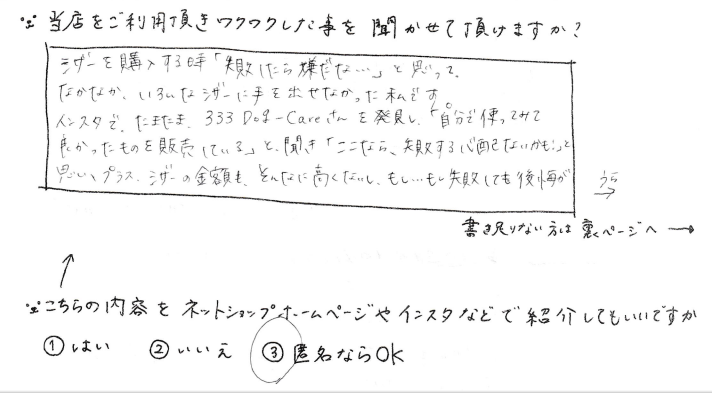 ※ 当店をご利用頂きワクワクした事を聞かせて頂けますか?
シザーを購入する時「失敗したら嫌だな…」と思って、
なかなか、いろんなシザーに手を出せなかった私です
インスタで、たまたま、333 Dog-Careさんを発見し、「自分で使ってみて
良かったものを販売している」と、聞き「ここなら、失敗する心配ないかも!」と
思い、プラス、シザーの金額も、そんなに高くないし、もし…もし失敗しても後悔が
うら →
書き足りない方は裏ページへ →
※ こちらの内容をネットショップホームページやインスタなどで紹介してもいいですか
① はい ② いいえ ③ 匿名ならOK